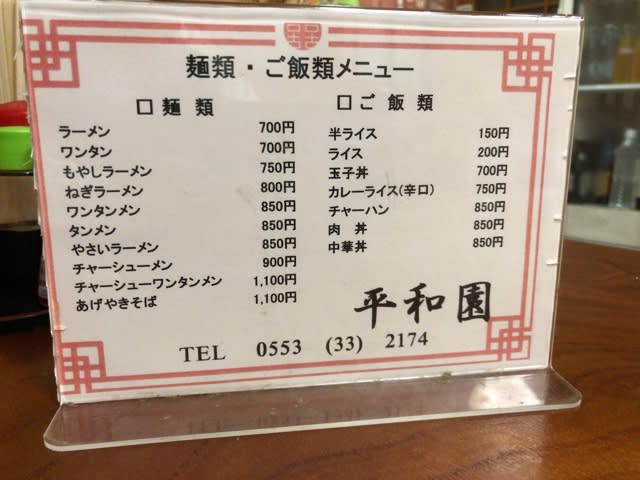 麺類・ご飯類メニュー
□ 麺 類
ラーメン 700円
ワンタン 700円
もやしラーメン 750円
ねぎラーメン 800円
ワンタンメン 850円
タンメン 850円
やさいラーメン 850円
チャーシューメン 900円
チャーシューワンタンメン 1,100円
あげやきそば 1,100円
□ ご 飯 類
半ライス 150円
ライス 200円
玉子丼 700円
カレーライス(辛口) 750円
チャーハン 850円
肉 丼 850円
中華丼 850円
平和園
TEL 0553 (33) 2174